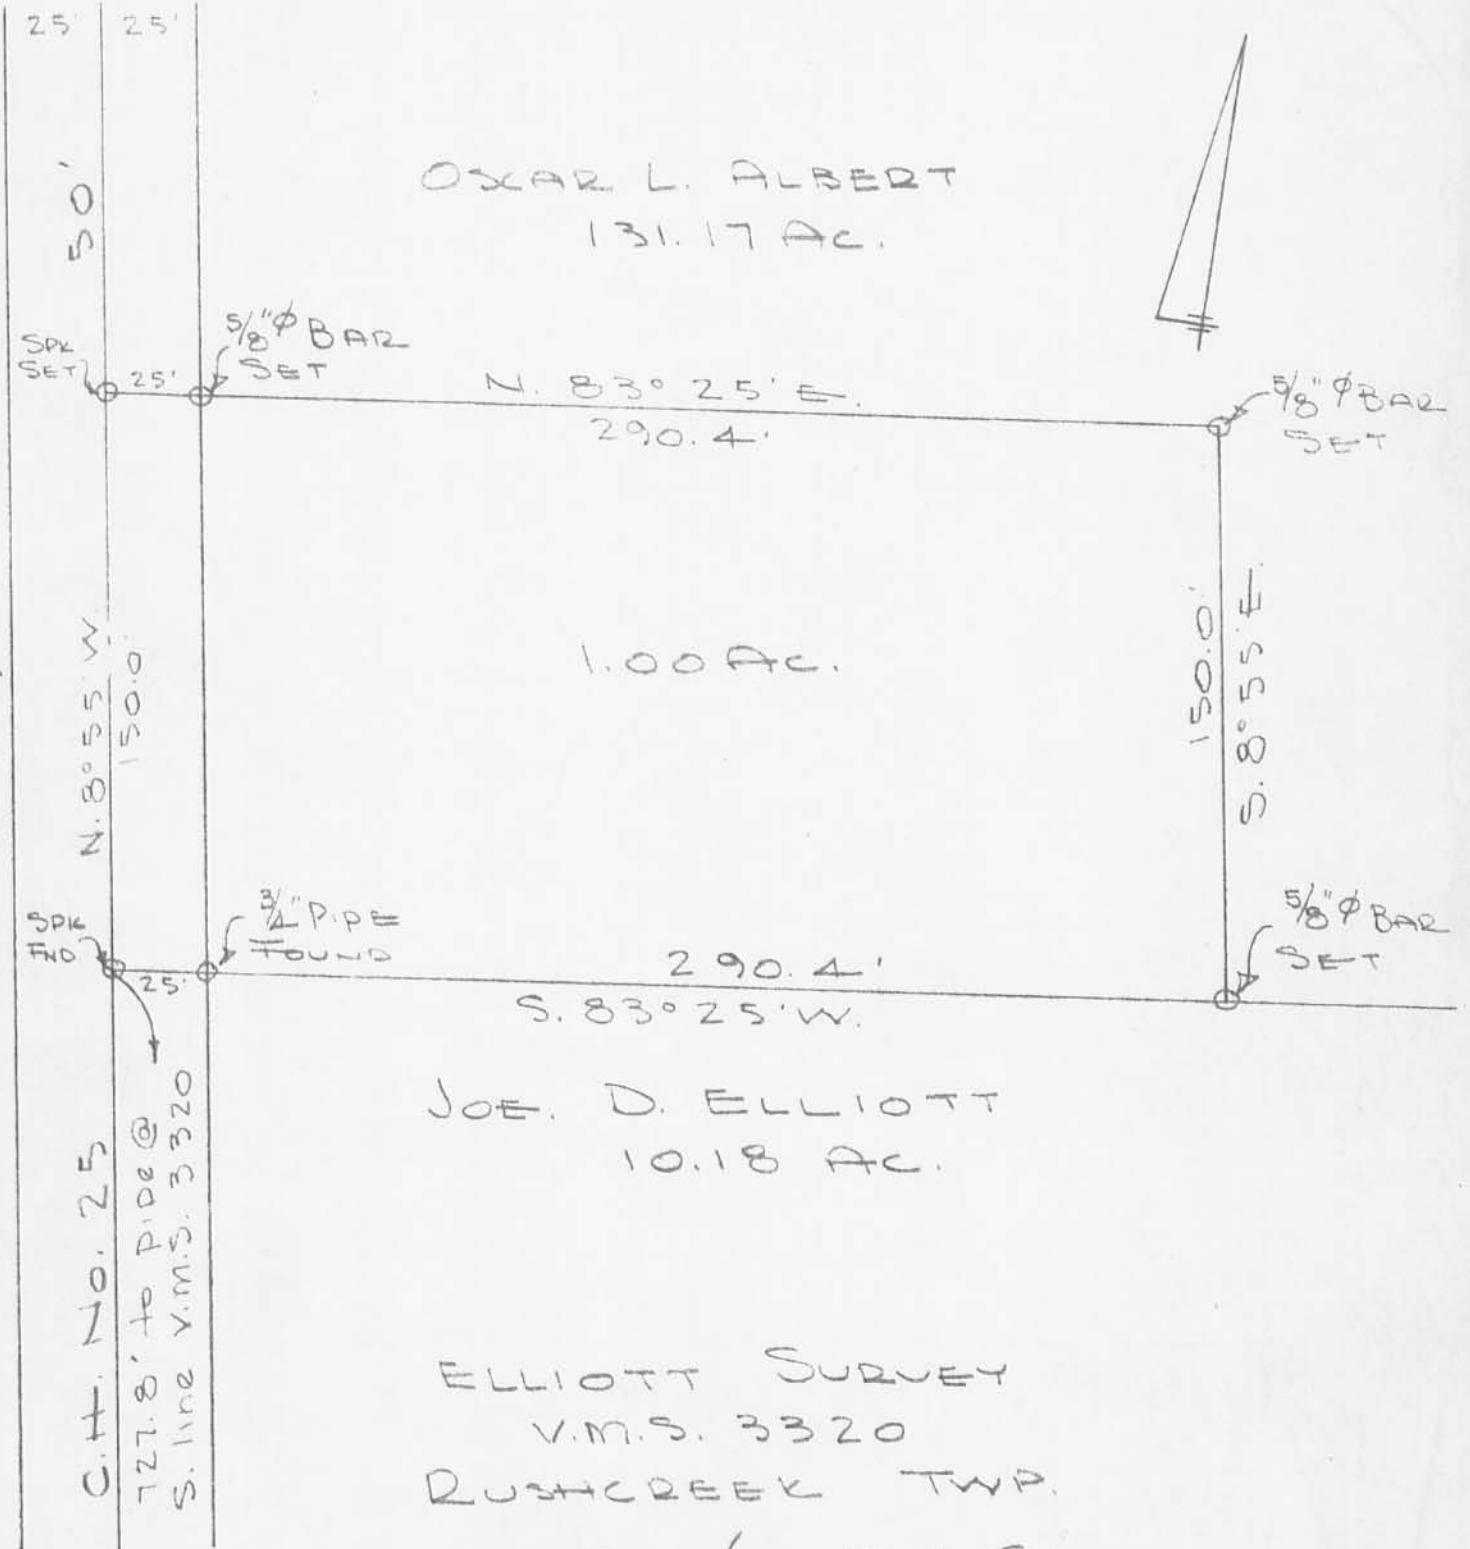 25' 25'
50'
OSCAR L. ALBERT
131.17 AC.
SPK
SET
25'
5/8" ϕ BAR
SET
N. 83° 25' E.
290.4'
5/8" ϕ BAR
SET
N. 8° 55' W
150.0'
1.00 AC.
150.0'
S. 8° 55' E.
SPK
FND
25'
3/4" PIPE
FOUND
290.4'
S. 83° 25' W.
5/8" ϕ BAR
SET
JOE. D. ELLIOTT
10.18 AC.
C.H. No. 25
727.8' to pipe @
S. line V.M.S. 3320
ELLIOTT SURVEY
V.M.S. 3320
RUSHCREEK TWP.